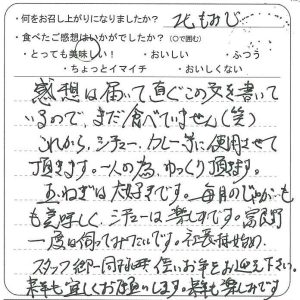 ・何をお召し上がりになりましたか？
・食べたご感想はいかがでしたか？（○で囲む）
・とっても美味しい！　・おいしい　・ふつう
・ちょっとイマイチ　・おいしくない
感想は届いて直ぐこの文を書いて
いるので、まだ食べていません（笑）
これから、シチュー、カレー等に使用させて
頂きます。一人の為、ゆっくり頂ます。
玉ねぎは大好きです。毎月のじゃがいも
も美味しく、シチューは楽しみです。富良野
一度は伺ってみたいです。社長様始め
スタッフ御一同様 佳いお年をお迎え下さい。
来年も宜しくお願いします。来年も楽しみです